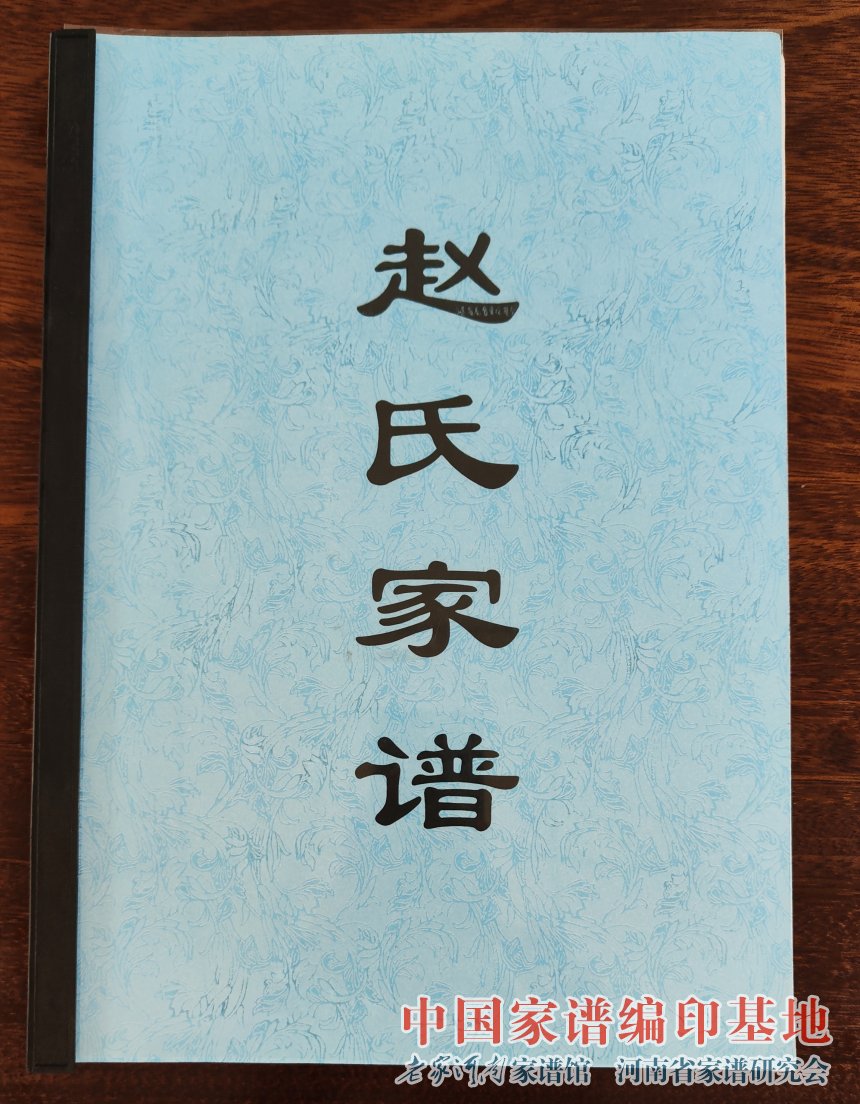 赵氏家谱
中国家谱编印基地
老家河南家谱馆 河南省家谱研究会